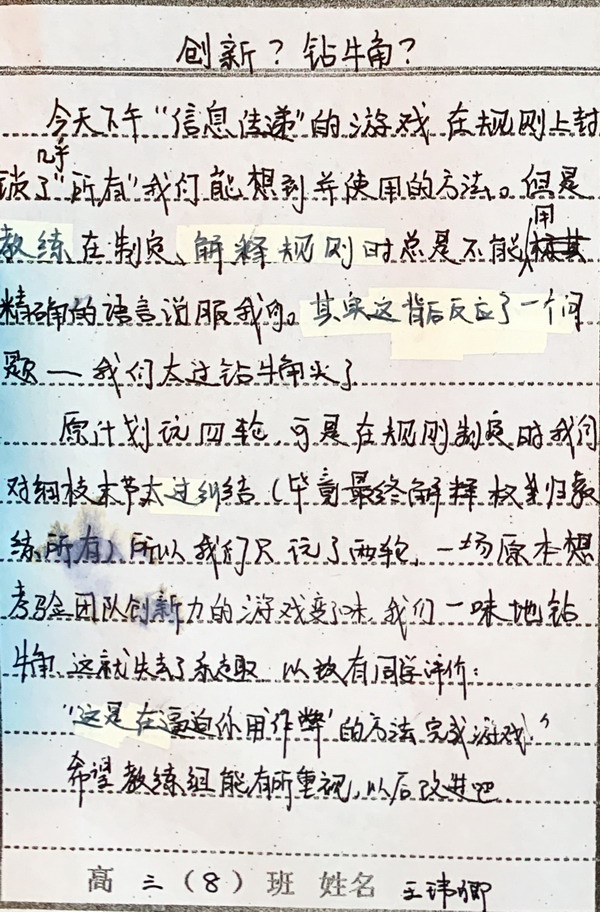 创新？钻牛角？
今天下午“信息传递”的游戏在规则上封
几乎
锁了“所有”我们能想到并使用的方法。但是
用
教练在制定、解释规则时总是不能
精确的语言说服我们。其实这背后反应了一个问
题——我们太过钻牛角尖了
原计划玩四轮，可是在规则制定时我们
对细枝末节太过纠结（毕竟最终解释权差归教
练所有）所以我们只玩了两轮，一场原本想
考验团队创新力的游戏变了味，我们一味地钻
牛角，这就失去了乐趣 以致有同学评价：
“这是在逼迫你用‘作弊’的方法完成游戏”
希望教练组能有所重视，以后改进吧
高三（8）班 姓名 王玮卿